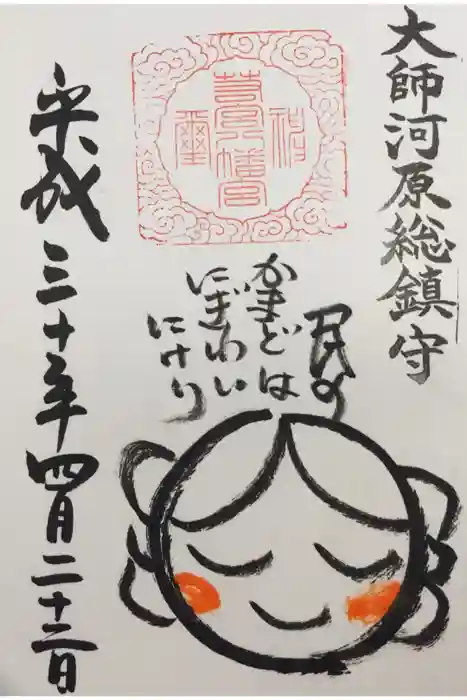 大師河原総鎮守
若宮八幡宮
民の
かまどは
にぎわい
にけり
平成三十年四月二十二日